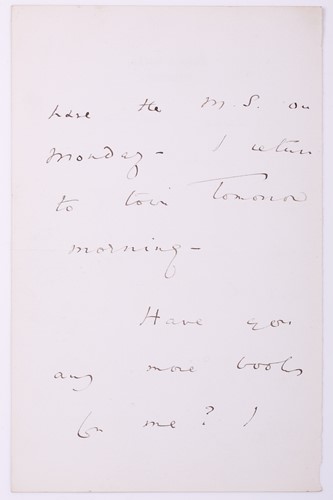 have the M.S. on
Monday – I return
to town Tomorrow
morning –
Have you
any more books
for me? I